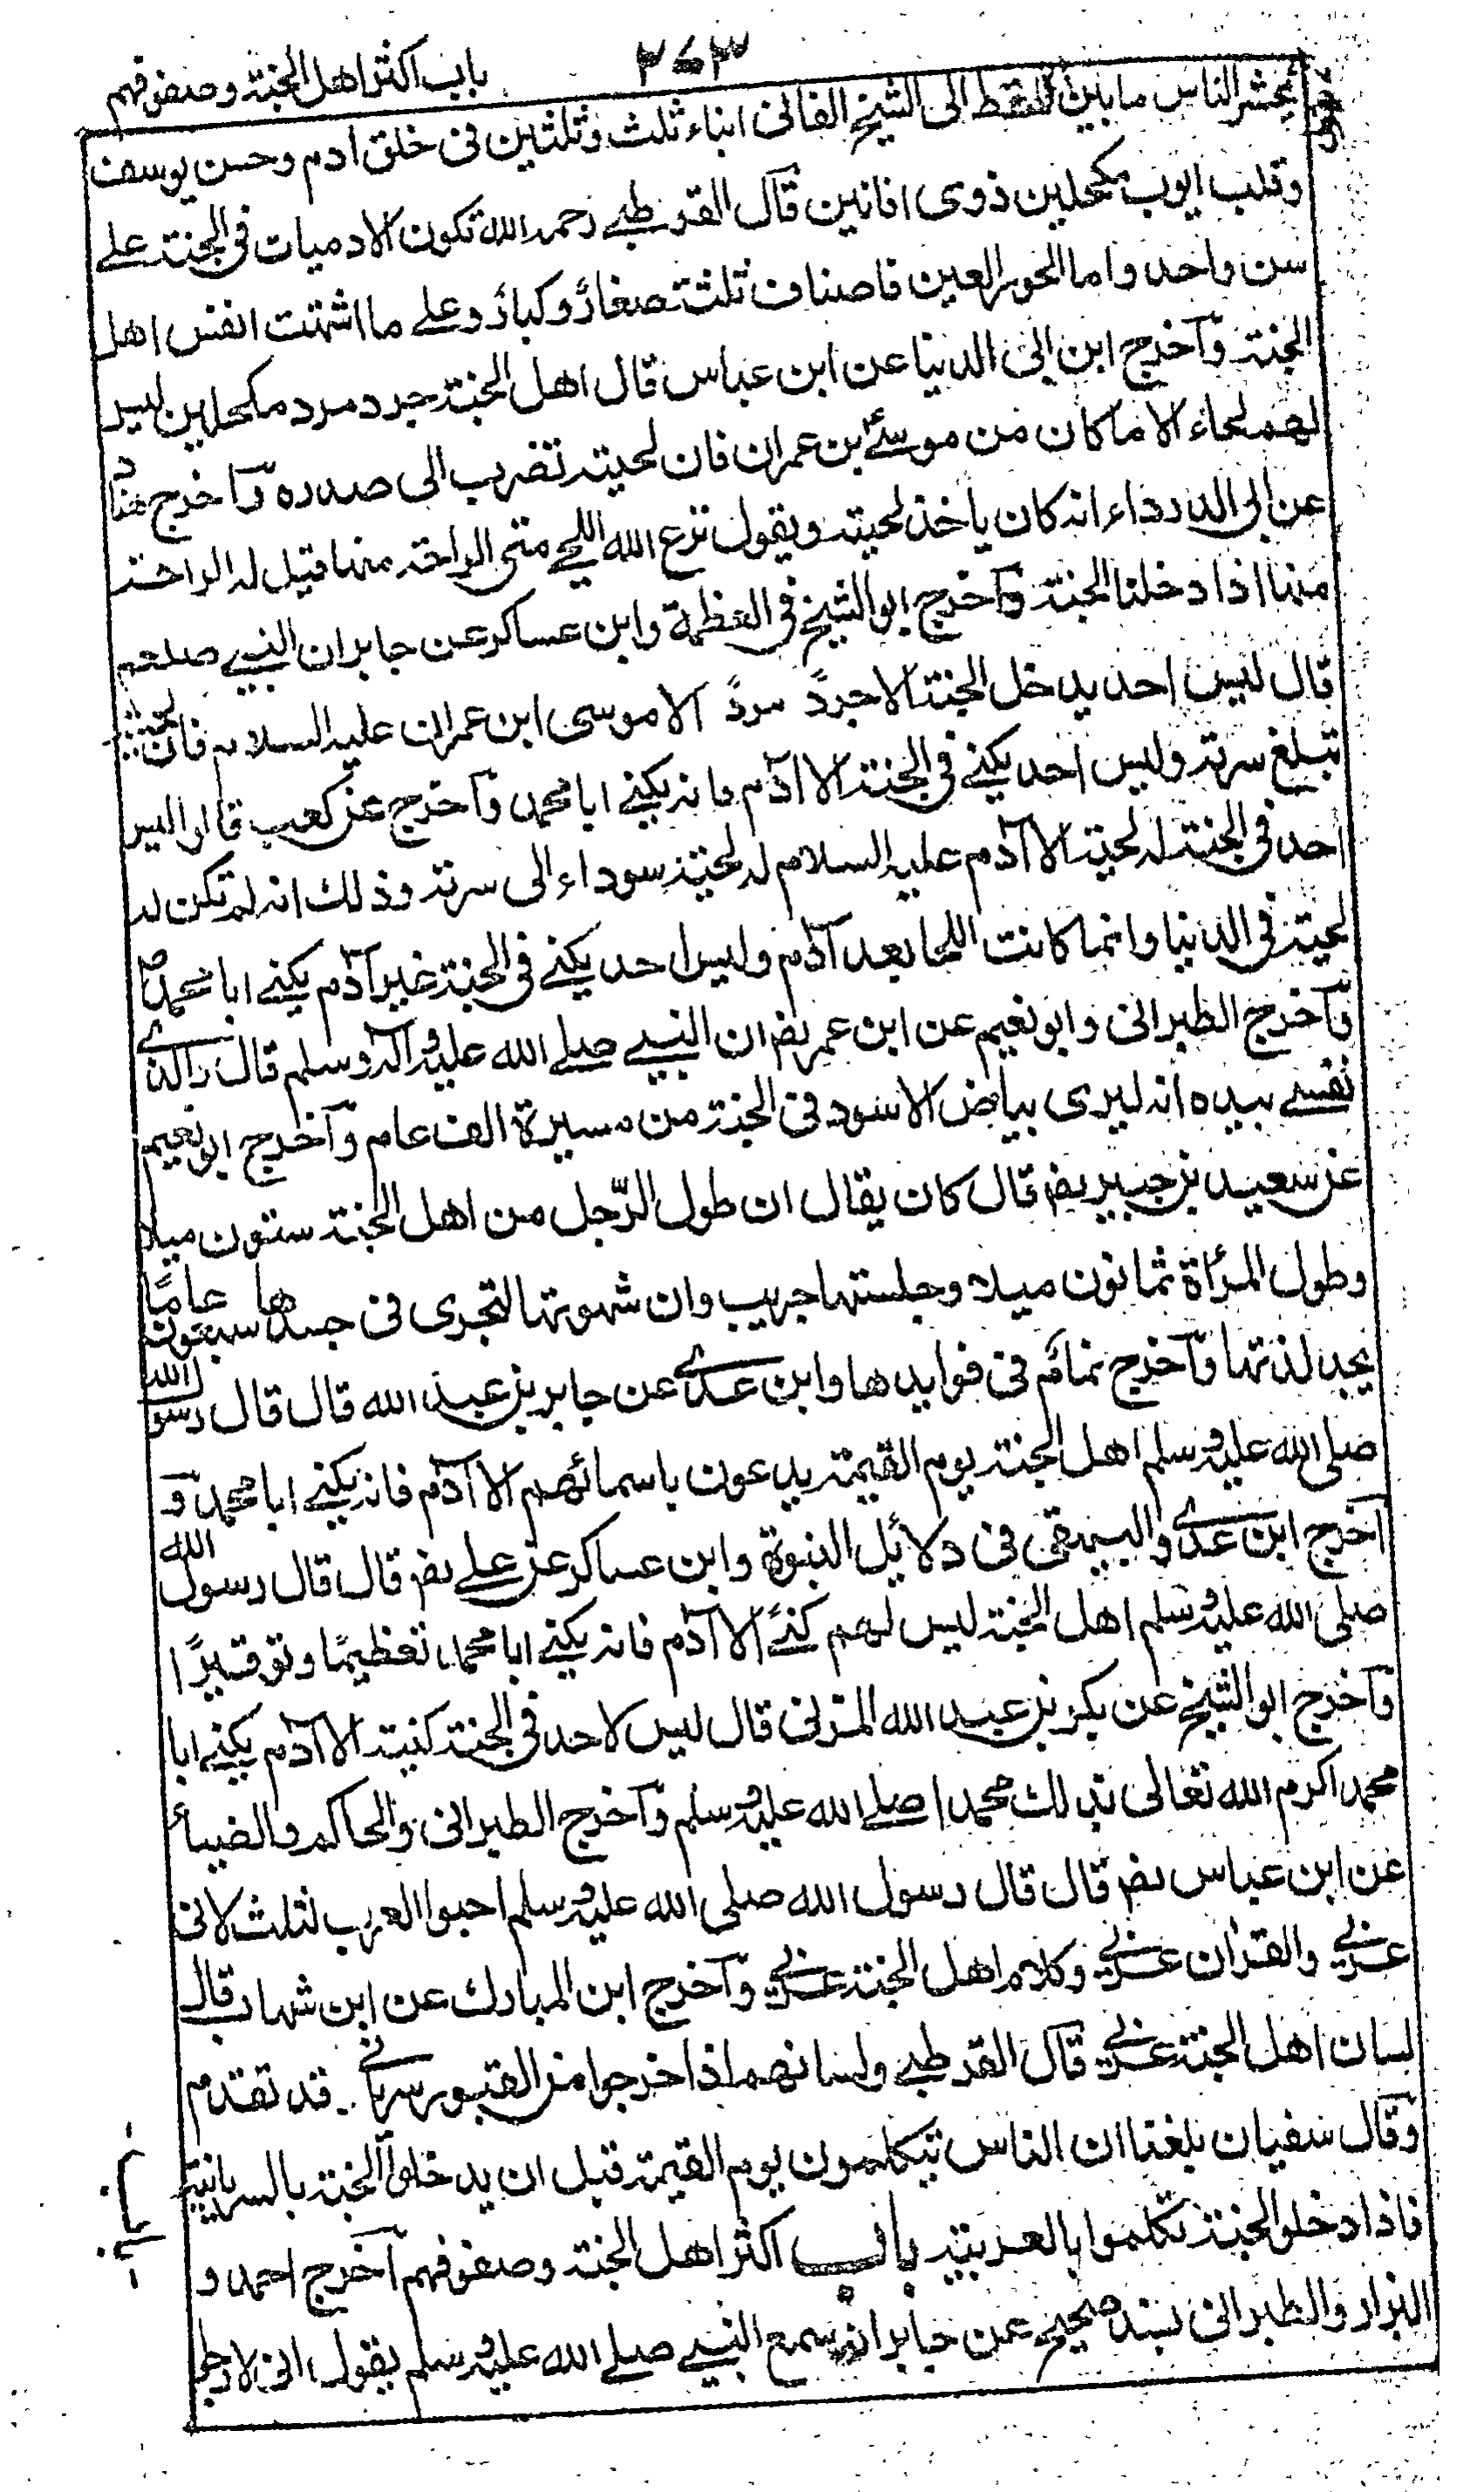 ٢٧٣
باب اكثر اهل الجنة وصفوفهم
يحشر الناس ما بين السقط الى الشيخ الفانى ابناء ثلث وثلثين فى خلق ادم وحسن يوسف
وقلب ايوب مكحلين ذوى افانين قال القرطبے رحمه الله تكون الادميات فى الجنة علے
سن واحد واما الحور العين فاصناف ثلثة صغار وكبار وعلے ما اشتهت انفس اهل
الجنة وآخرج ابن ابى الدنيا عن ابن عباس قال اهل الجنة جرد مرد مكحلين ليس
لهم لحاء الا ما كان من موسےٰ بن عمران فان لحيته تضرب الى صدره وآخرج هناد
عن ابى الدرداء انه كان ياخذ لحيته ويقول نزع الله اللحے متى الراحة منها قيل له الراحة
منها اذا دخلنا الجنة وآخرج ابو الشيخ فى العظمة وابن عساكر عن جابر ان النبے صلعم
قال ليس احد يدخل الجنة الا جردً مردً الا موسى ابن عمران عليه السلام فان لحيته
تبلغ سرته وليس احد يكنے فى الجنة الا آدم فانه يكنے ابا محمد وآخرج عن كعب قال ليس
احد فى الجنة له لحية الا آدم عليه السلام له لحية سوداء الى سرته وذلك انه لم تكن له
لحية فى الدنيا وانما كانت اللحا بعد آدم وليس احد يكنے فى الجنة غير آدم يكنے ابا محمد ص
وآخرج الطبرانى وابو نعيم عن ابن عمر رض ان النبے صلے الله عليه وآله وسلم قال والذے
نفسے بيده انه ليرى بياض الاسود فى الجنة من مسيرة الف عام وآخرج ابو نعيم
عن سعيد بن جبير رض قال كان يقال ان طول الرّجل من اهل الجنة ستون ميلا
وطول المرأة ثمانون ميلا وجلستها جريب وان شهوتها لتجرى فى جسدها سبعون عامًا
يجد لذتها وآخرج تمام فى فوايدها وابن عدے عن جابر بن عبد الله قال قال رسول الله
صلى الله عليه وسلم اهل الجنة يوم القيمة يدعون باسمائهم الا آدم فانه يكنے ابا محمد و
آخرج ابن عدے والبيهقى فى دلائل النبوة وابن عساكر عن علے رض قال قال رسول الله
صلى الله عليه وسلم اهل الجنة ليس لهم كنےً الا آدم فانه يكنے ابا محمد تعظيمًا وتوقيرًا
وآخرج ابو الشيخ عن بكر بن عبد الله المزنى قال ليس لاحد فى الجنة كنية الا آدم يكنے ابا
محمد اكرم الله تعالى بذلك محمدا صلے الله عليه وسلم وآخرج الطبرانى والحاكم والضيأ
عن ابن عباس رض قال قال رسول الله صلى الله عليه وسلم احبوا العرب لثلث لانى
عربے والقران عربے وكلام اهل الجنة عربے وآخرج ابن المبارك عن ابن شهاب قال
لسان اهل الجنة عربے قال القرطبے ولسانهم اذا خرجوا من القبور سريانے قد تقدم
وقال سفيان بلغنا ان الناس يتكلمون يوم القيمة قبل ان يدخلوا الجنة بالسريانية
فاذا دخلوا الجنة تكلموا بالعربية باب اكثر اهل الجنة وصفوفهم آخرج احمد و
البزار والطبرانى بسند صحيح عن جابر انه سمع النبے صلے الله عليه وسلم يقول انى لارجو
باب